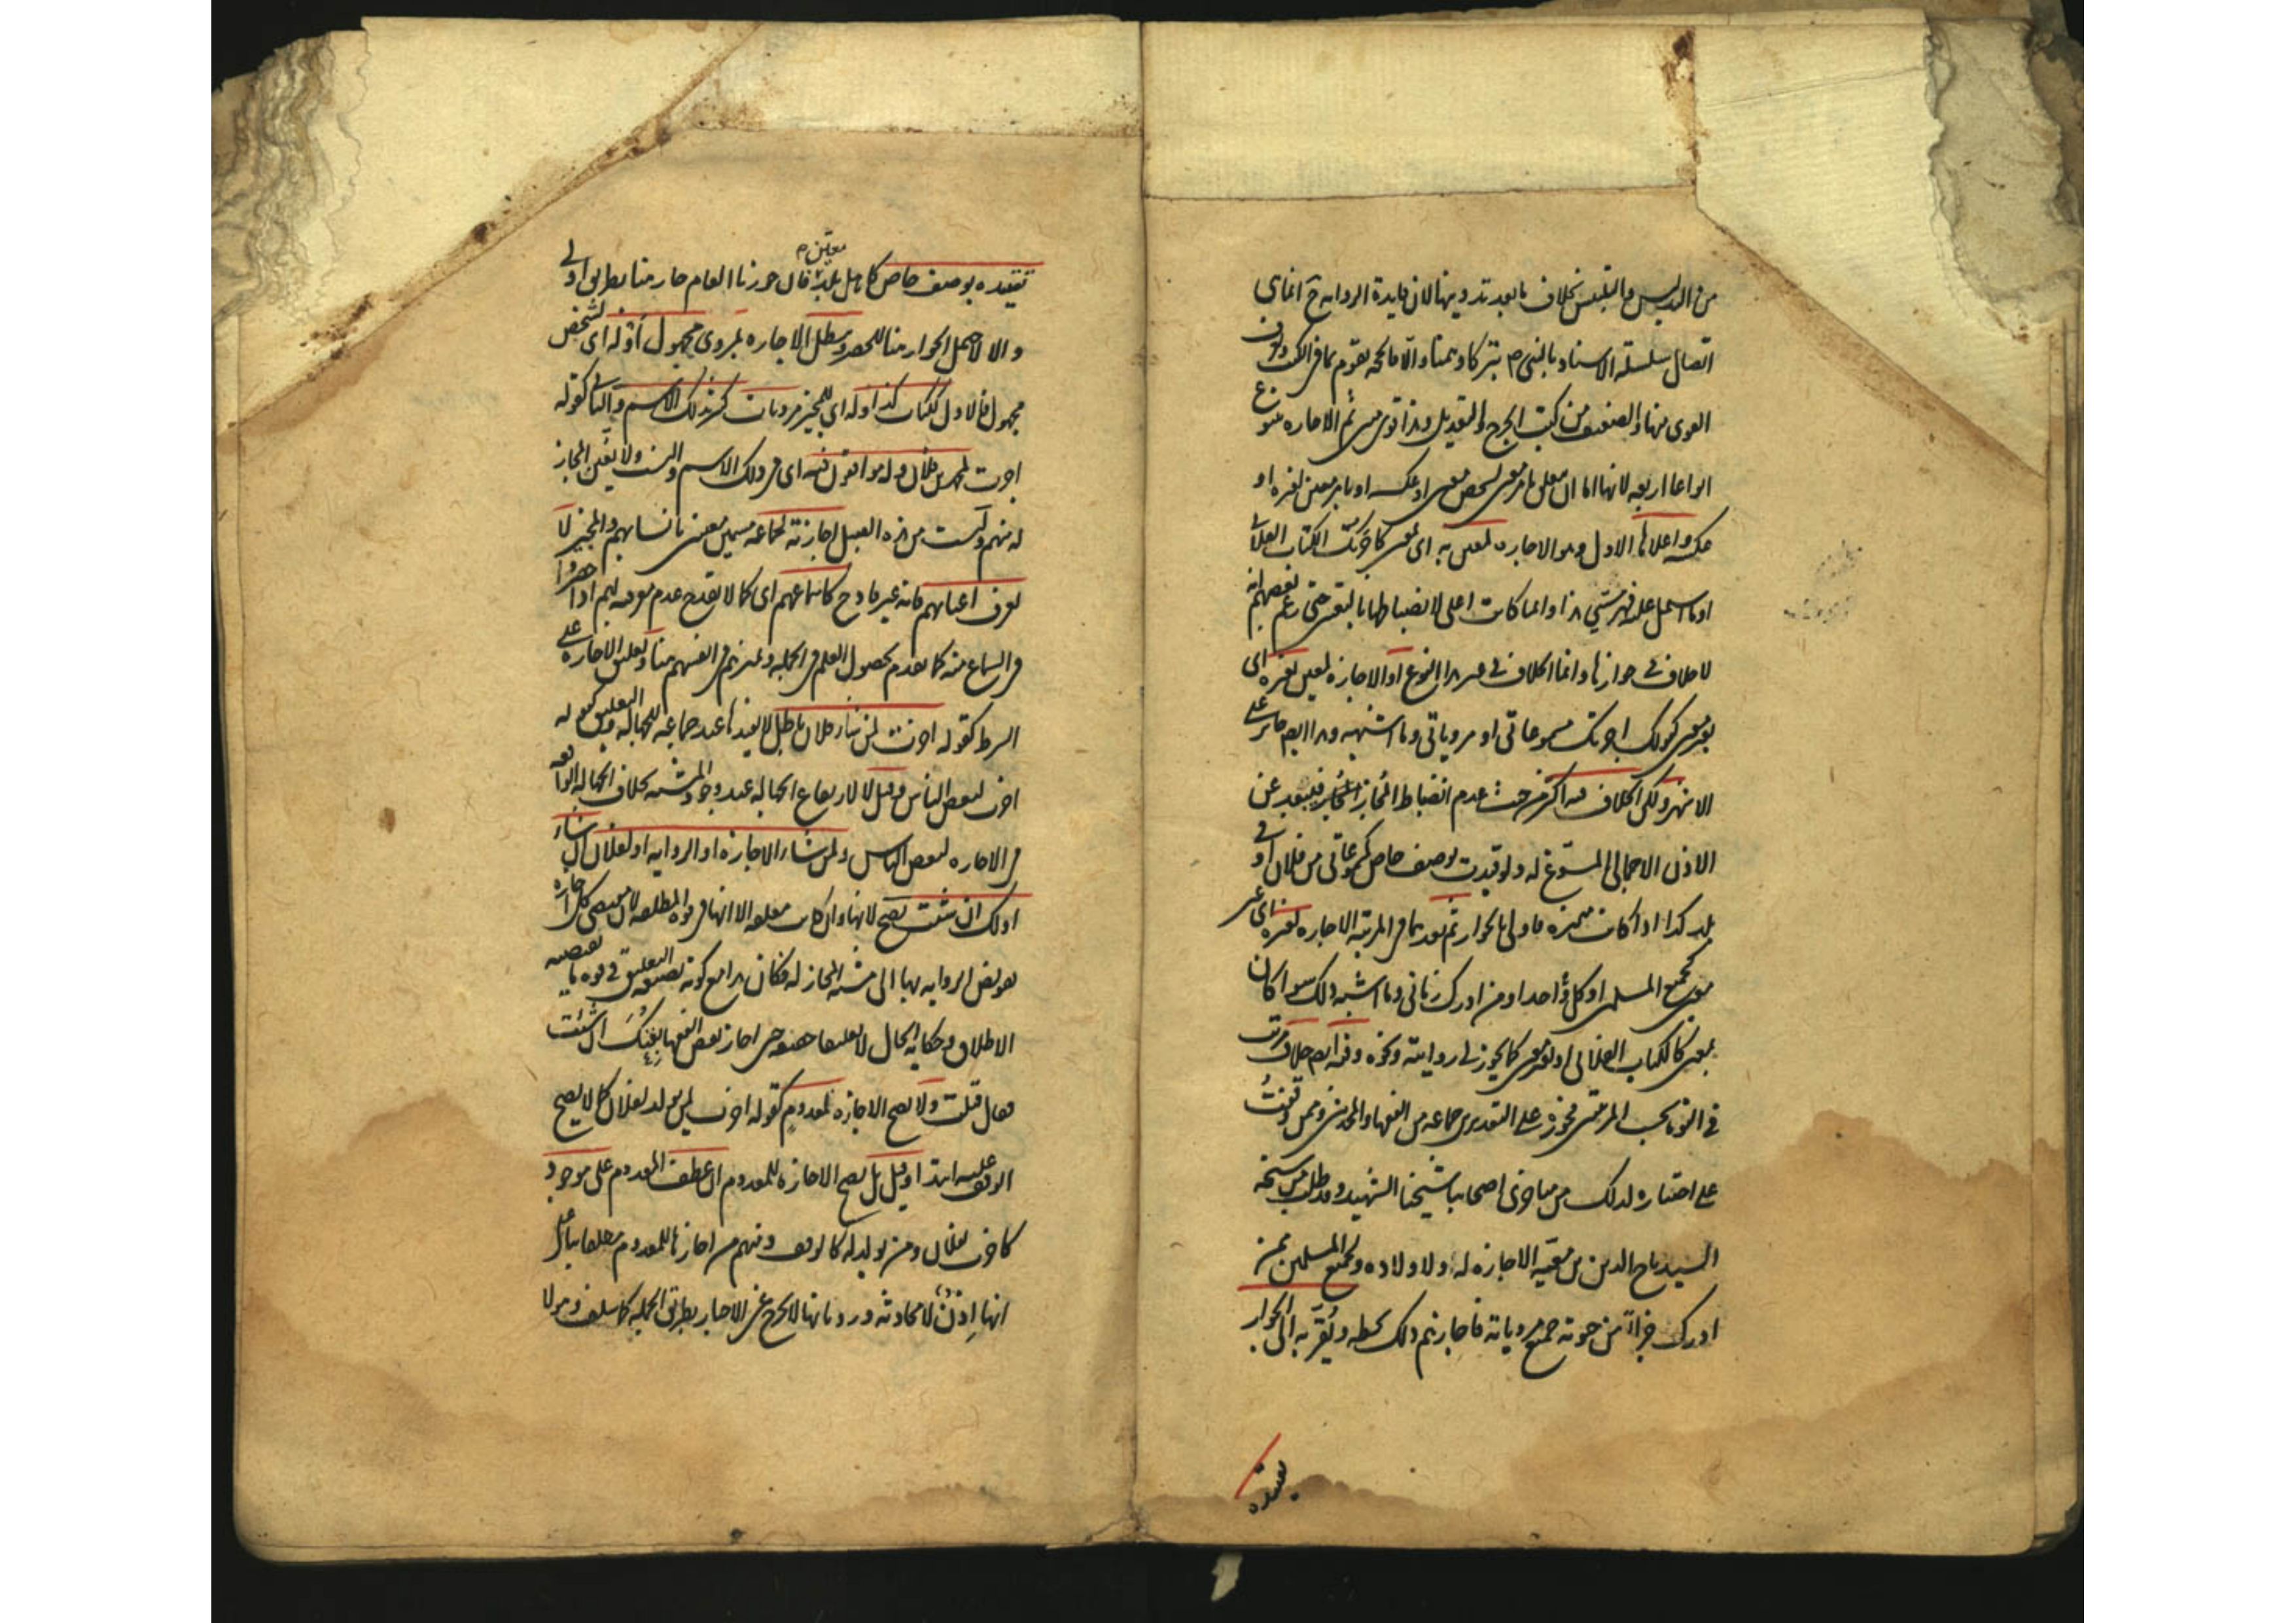 من التدليس والتلبس بخلاف ما بعد تدوينها لان فايدة الرواية ح انما هي
اتصال سلسلة الاسناد بالنبي ص تبركا وتيمنا والا فالحجة تقوم بما في الكتب ويعرف
القوى منها والضعيف من كتب الجرح والتعديل وهذا قوى متين ثم الاجازه تتنوع
انواعا اربعه لانها اما ان تتعلق بامر معين لشخص معين او عكسه او بامر معين لغيره او
عكسه واعلاها الاول وهو الاجازه لمعين به اى بمعين كاجزتك الكتاب الفلانى
او ما اشتمل عليه فهرستي هذا وانما كانت اعلى لانضباطها بالتعيين حتى زعم بعضهم انه
لا خلاف في جوازها وانما الخلاف في غير هذا النوع او الاجازة لمعين بغيره اى
بغير معين كقولك اجزتك مسموعاتى او مروياتى وما اشبهه وهذا ايضا جائز على
الاشهر ولكن الخلاف فيه اكثر من حيث عدم انضباط المجاز فيبعد عن
الاذن الاجمالى المسوغ له ولو قيدت بوصف خاص كمسموعاتى من فلان او في
بلد كذا اذا كانت متميزه فاولى بالجواز ثم بعدهما في المرتبة الاجازه لغيره اى غير
معين كجميع المسلمين او كل احد او من ادرك زمانى وما اشبه ذلك سوا كان
بمعين كالكتاب الفلانى او بغير معين كما يجوز لى روايته ونحوه وفيه ايضا خلاف مرتب
في القوة بحسب المرتبتين فجوزه على التقديرين جماعه من الفقها والمحدثين وممن وقفت
على اختياره لذلك من متاخرى اصحابنا شيخنا الشهيد وقد طلب من شيخه
السيد تاج الدين بن معية الاجازه له ولاولاده ولجميع المسلمين ممن
ادرك جزأ من حيوته جميع مروياته فاجازهم ذلك بخطه ويقرب به الى الجواز
تقييده
تقييده بوصف خاص كاهل بلد معين فان جوزنا العام جاز هنا بطريق اولى
والا لاحتمل الجواز هنا للحصر وتبطل الاجازه بمروى مجهول او له اى لشخص
مجهول فالاول ككتاب كذا وله اى للمجيز مرويات كثيره بذلك الاسم والثانى كقوله
اجزت لمحمد بن فلان وله موافقون فيه اى في ذلك الاسم والنسب ولا يتعين المجاز
له منهم وليست من هذا القبيل اجازته لجماعة مسمين معينين بانسابهم والمجيز لا
يعرف اعيانهم فانه غير قادح كاسماعهم اى كما لا يقدح عدم معرفته بهم اذا حضروا
في السماع منه كما تقدم لحصول العلم في الجملة وتميزهم في انفسهم هنا وتعليق الاجازه على
الشرط كقوله اجزت لمن شاء فلان باطل لا يفيدها عند جماعه للجهاله والتعليق كقوله
اجزت لبعض الناس وقيل لا لارتفاع الجهاله عند وجود المشيه بخلاف الجهاله الواقعه
في الاجازه لبعض الناس ولمن شاء الاجازه او الروايه او لفلان ان شاء
او لك ان شئت تصح لانها وان كانت معلقه الا انها في قوه المطلقه لان مقتضى كل اجازه
تفويض الروايه بها الى مشية المجاز له فكان هذا مع كونه بصيغه التعليق في قوه ما يقتضيه
الاطلاق وحكاية الحال لا تعليقا حقيقه حتى اجاز بعض الفقها بعتك ان شئت
فقال قبلت ولا تصح الاجازه لمعدوم كقوله اجزت لمن يولد لفلان كما لا يصح
الوقف عليه ابتدا وقيل بل يصح الاجازه للمعدوم ان عطف المعدوم على موجود
كاجزت لفلان ومن يولد له كالوقف ومنهم من اجازها للمعدوم مطلقا بنا على
انها اذن لا محادثه ورد بانها لا تخرج عن الاخبار بطريق الجملة كما سلف وهو لا